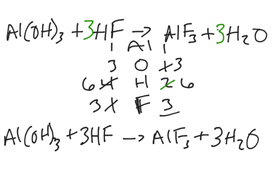 Al(OH)₃ + 3HF → AlF₃ + 3H₂O
1 Al 1
3 O 1 3
6 4 H 2 6
3 1 F 3
Al(OH)₃ + 3HF → AlF₃ + 3H₂O